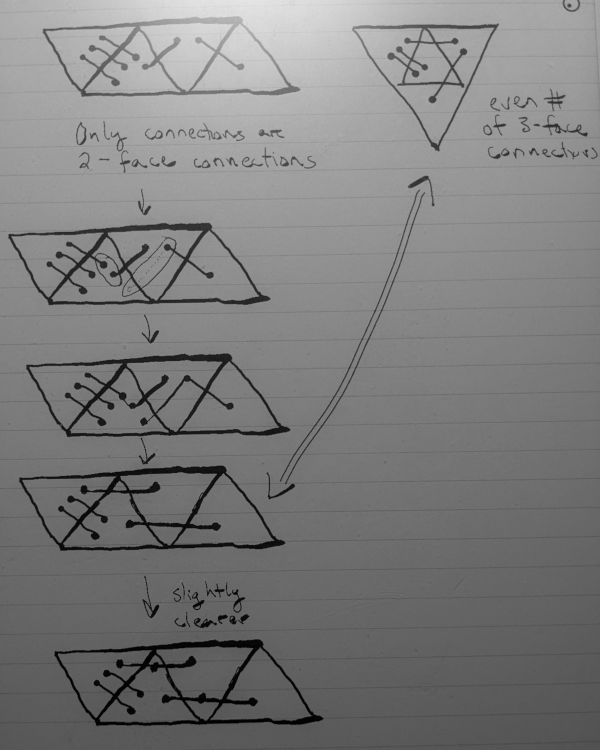 Only connections are
2-face connections
even #
of 3-face
connections
slightly
cleaner